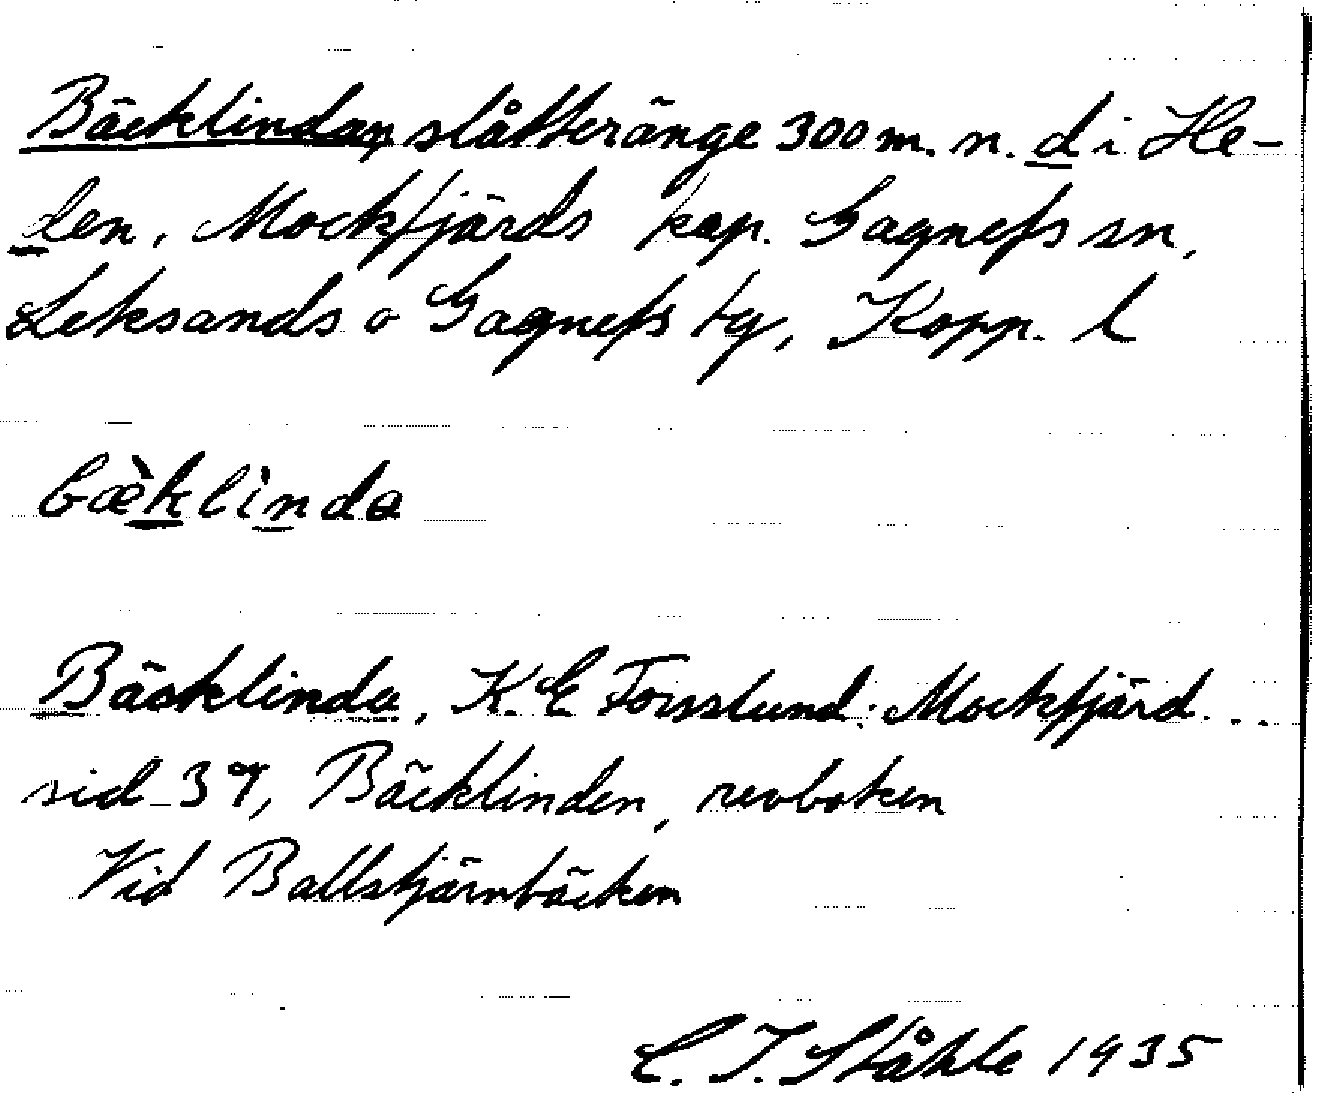 Bäcklindan, slåtteränge 300 m. n. d i He-
den, Mockfjärds kap. Gagnefs sn,
Leksands o Gagnefs tg, Kopp. l
bæ̀klìnda
Bäcklinda, K.E Forsslund: Mockfjärd...
sid 39, Bäcklinden, revboken
Vid Ballstjärnbäcken
C. I. Ståhle 1935